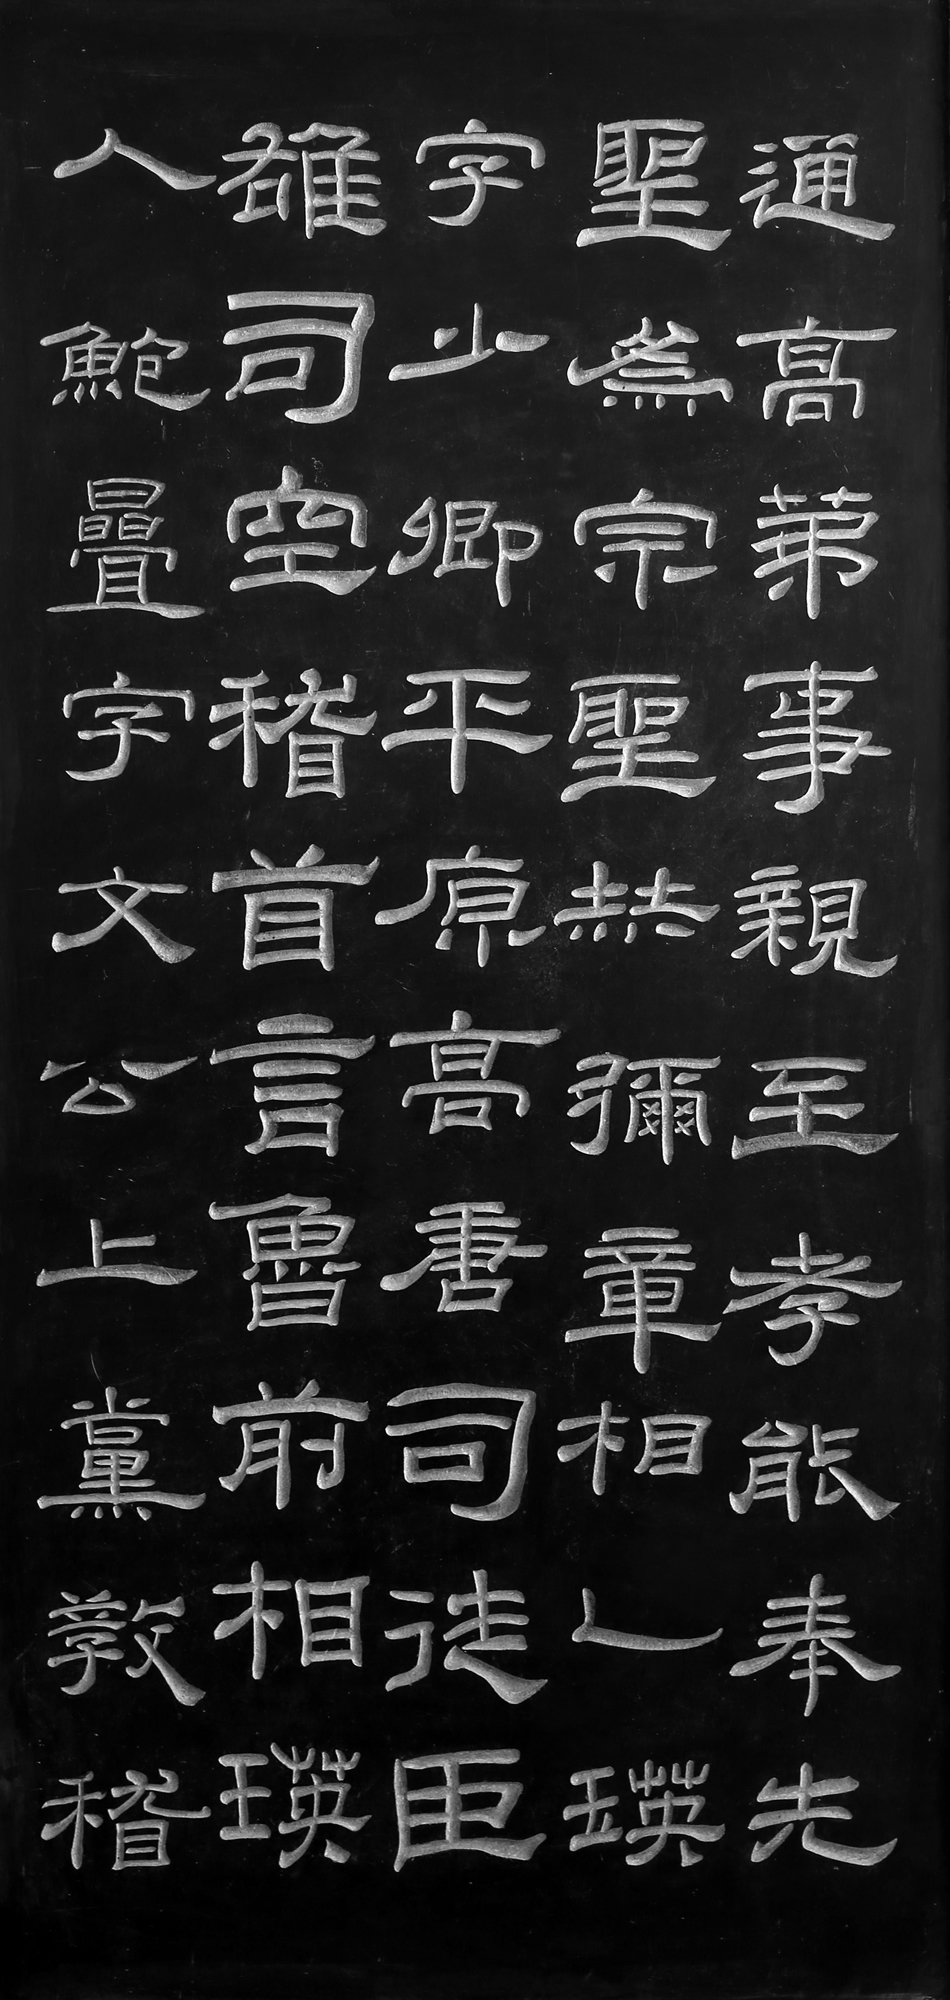 通高第事親至孝能奉先
聖爲宗聖赫彌章相乙瑛
字少卿平原高唐司徒臣
雄司空稽首言魯前相瑛
人鮑疊字文公上黨教稽